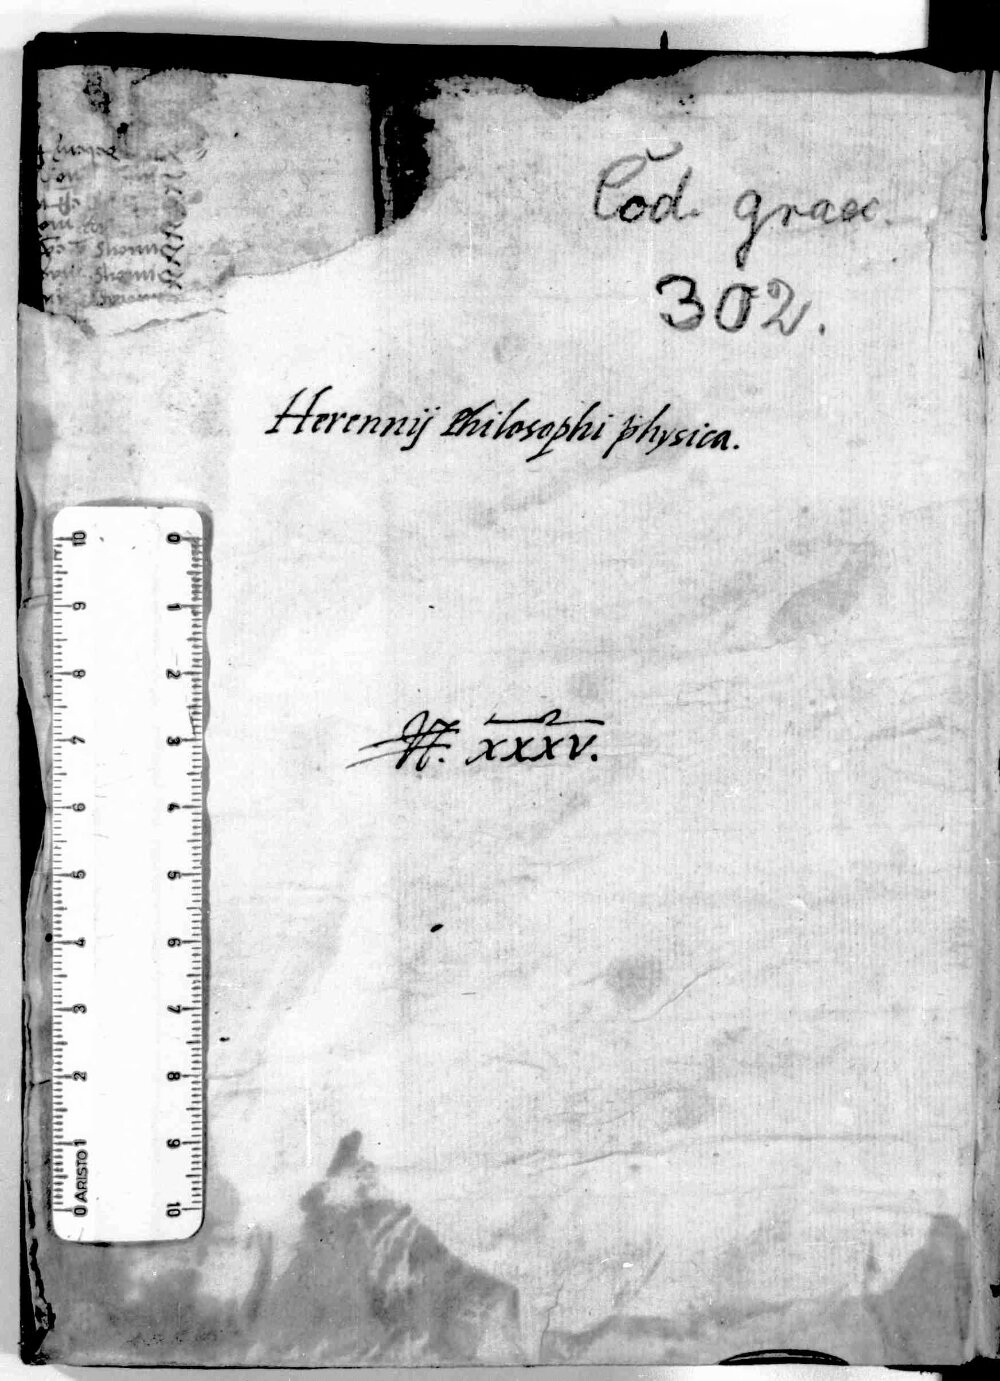 Cod. graec.
302.
Herennij Philosophi physica.
N. XXXV.
10 0
9 1
8 2
7 3
6 4
5 5
4 6
3 7
2 8
1 9
0 10
ARISTO